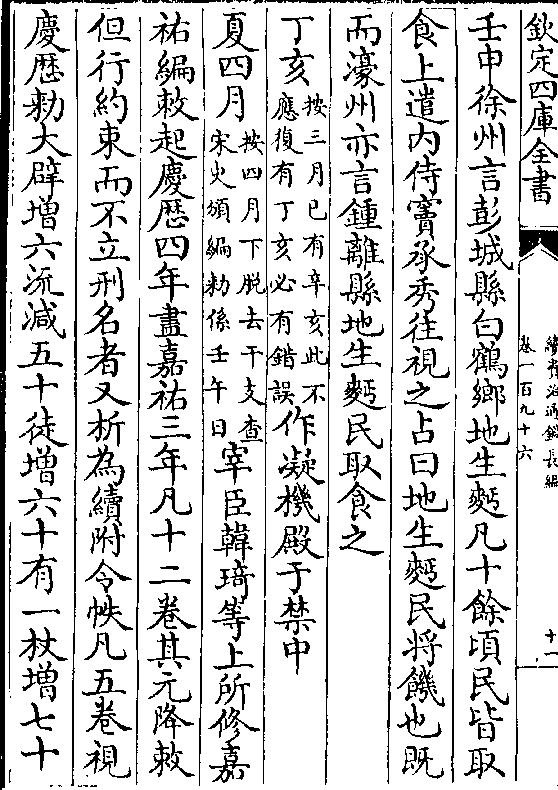 欽定四庫全書
續資治通鑑長編
卷一百九十六
十一
壬申徐州言彭城縣白鶴鄉地生麪凡十餘頃民皆取
食上遣內侍竇承秀往視之占曰地生麪民將饑也既
而濠州亦言鍾離縣地生麪民取食之
丁亥按三月已有辛亥此不應復有丁亥必有錯誤作凝機殿于禁中
夏四月按四月下脱去干支查宋史頒編勅係壬午日宰臣韓琦等上所修嘉
祐編敕起慶歴四年盡嘉祐三年凡十二卷其元降敕
但行約束而不立刑名者又析為續附令帙凡五卷視
慶歴勅大辟增六流減五十徒增六十有一杖增七十